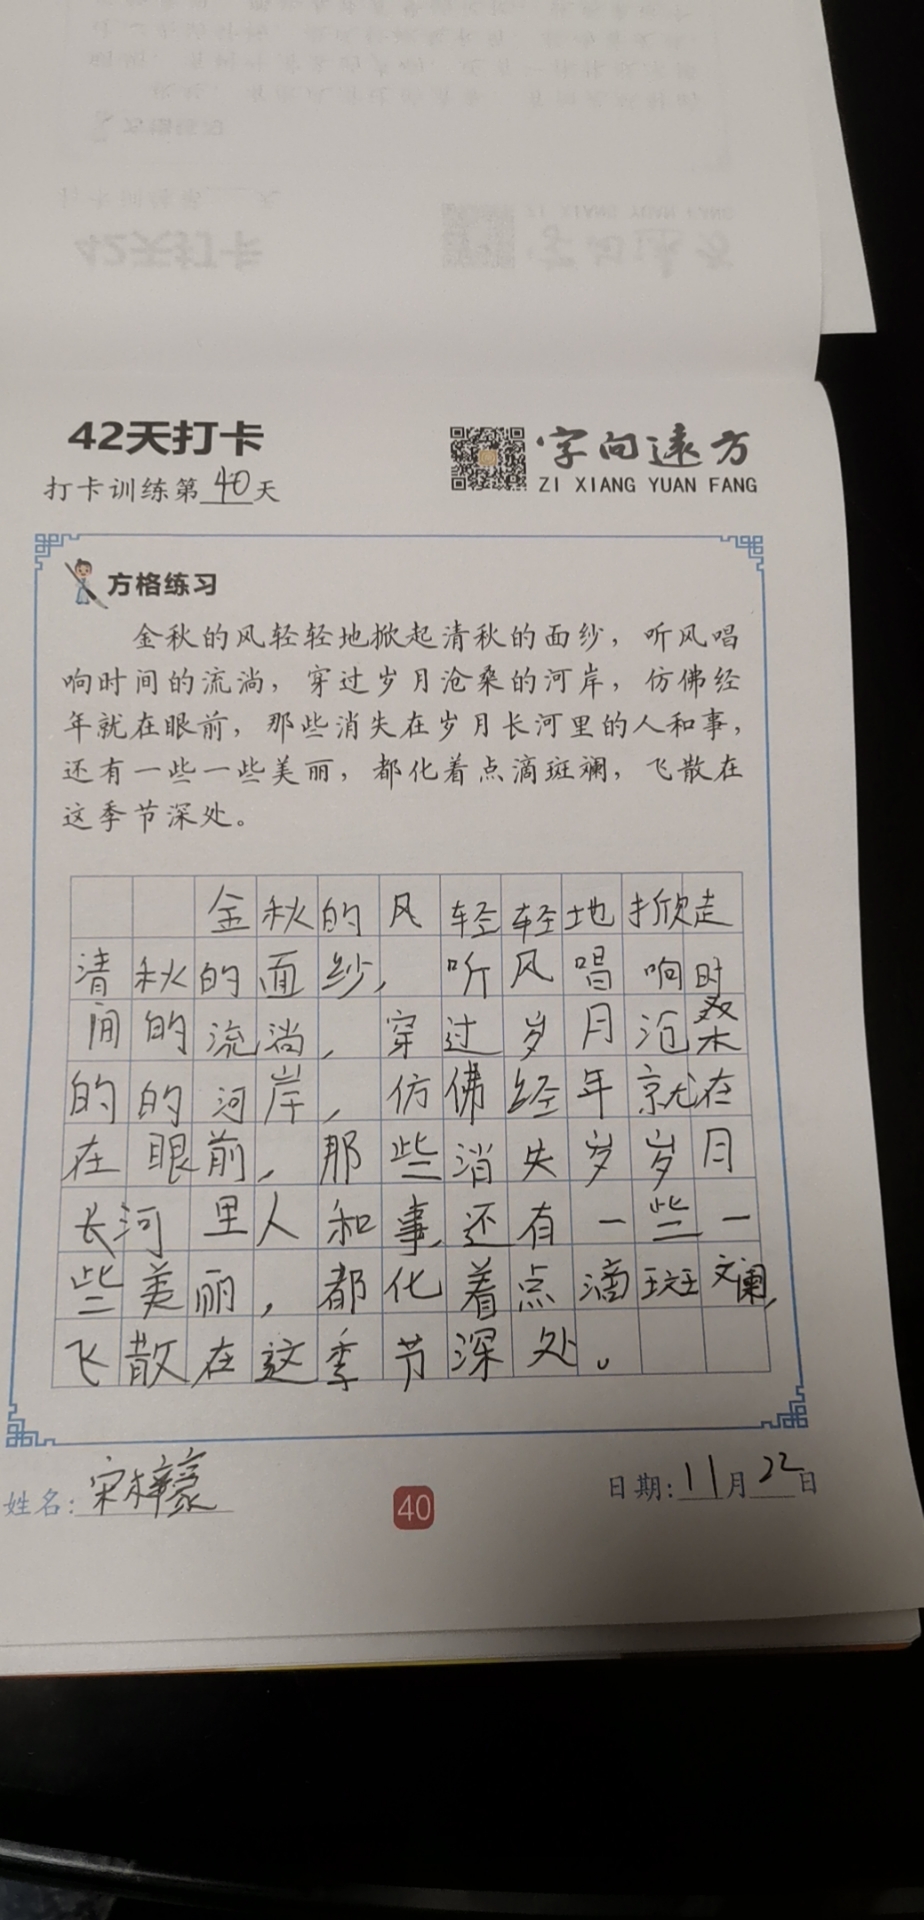 42天打卡
字向远方
打卡训练第40天
ZI XIANG YUAN FANG
方格练习
金秋的风轻轻地掀起清秋的面纱，听风唱
响时间的流淌，穿过岁月沧桑的河岸，仿佛经
年就在眼前，那些消失在岁月长河里的人和事，
还有一些一些美丽，都化着点滴斑斓，飞散在
这季节深处。
金秋的风轻轻地掀走
清秋的面纱，听风唱响时
间的流淌，穿过岁月沧桑
的的河岸，仿佛经年就在
在眼前，那些消失岁岁月
长河里人和事，还有一些一
些美丽，都化着点滴斑斓，
飞散在这季节深处。
姓名：宋梓豪
40
日期：11月22日